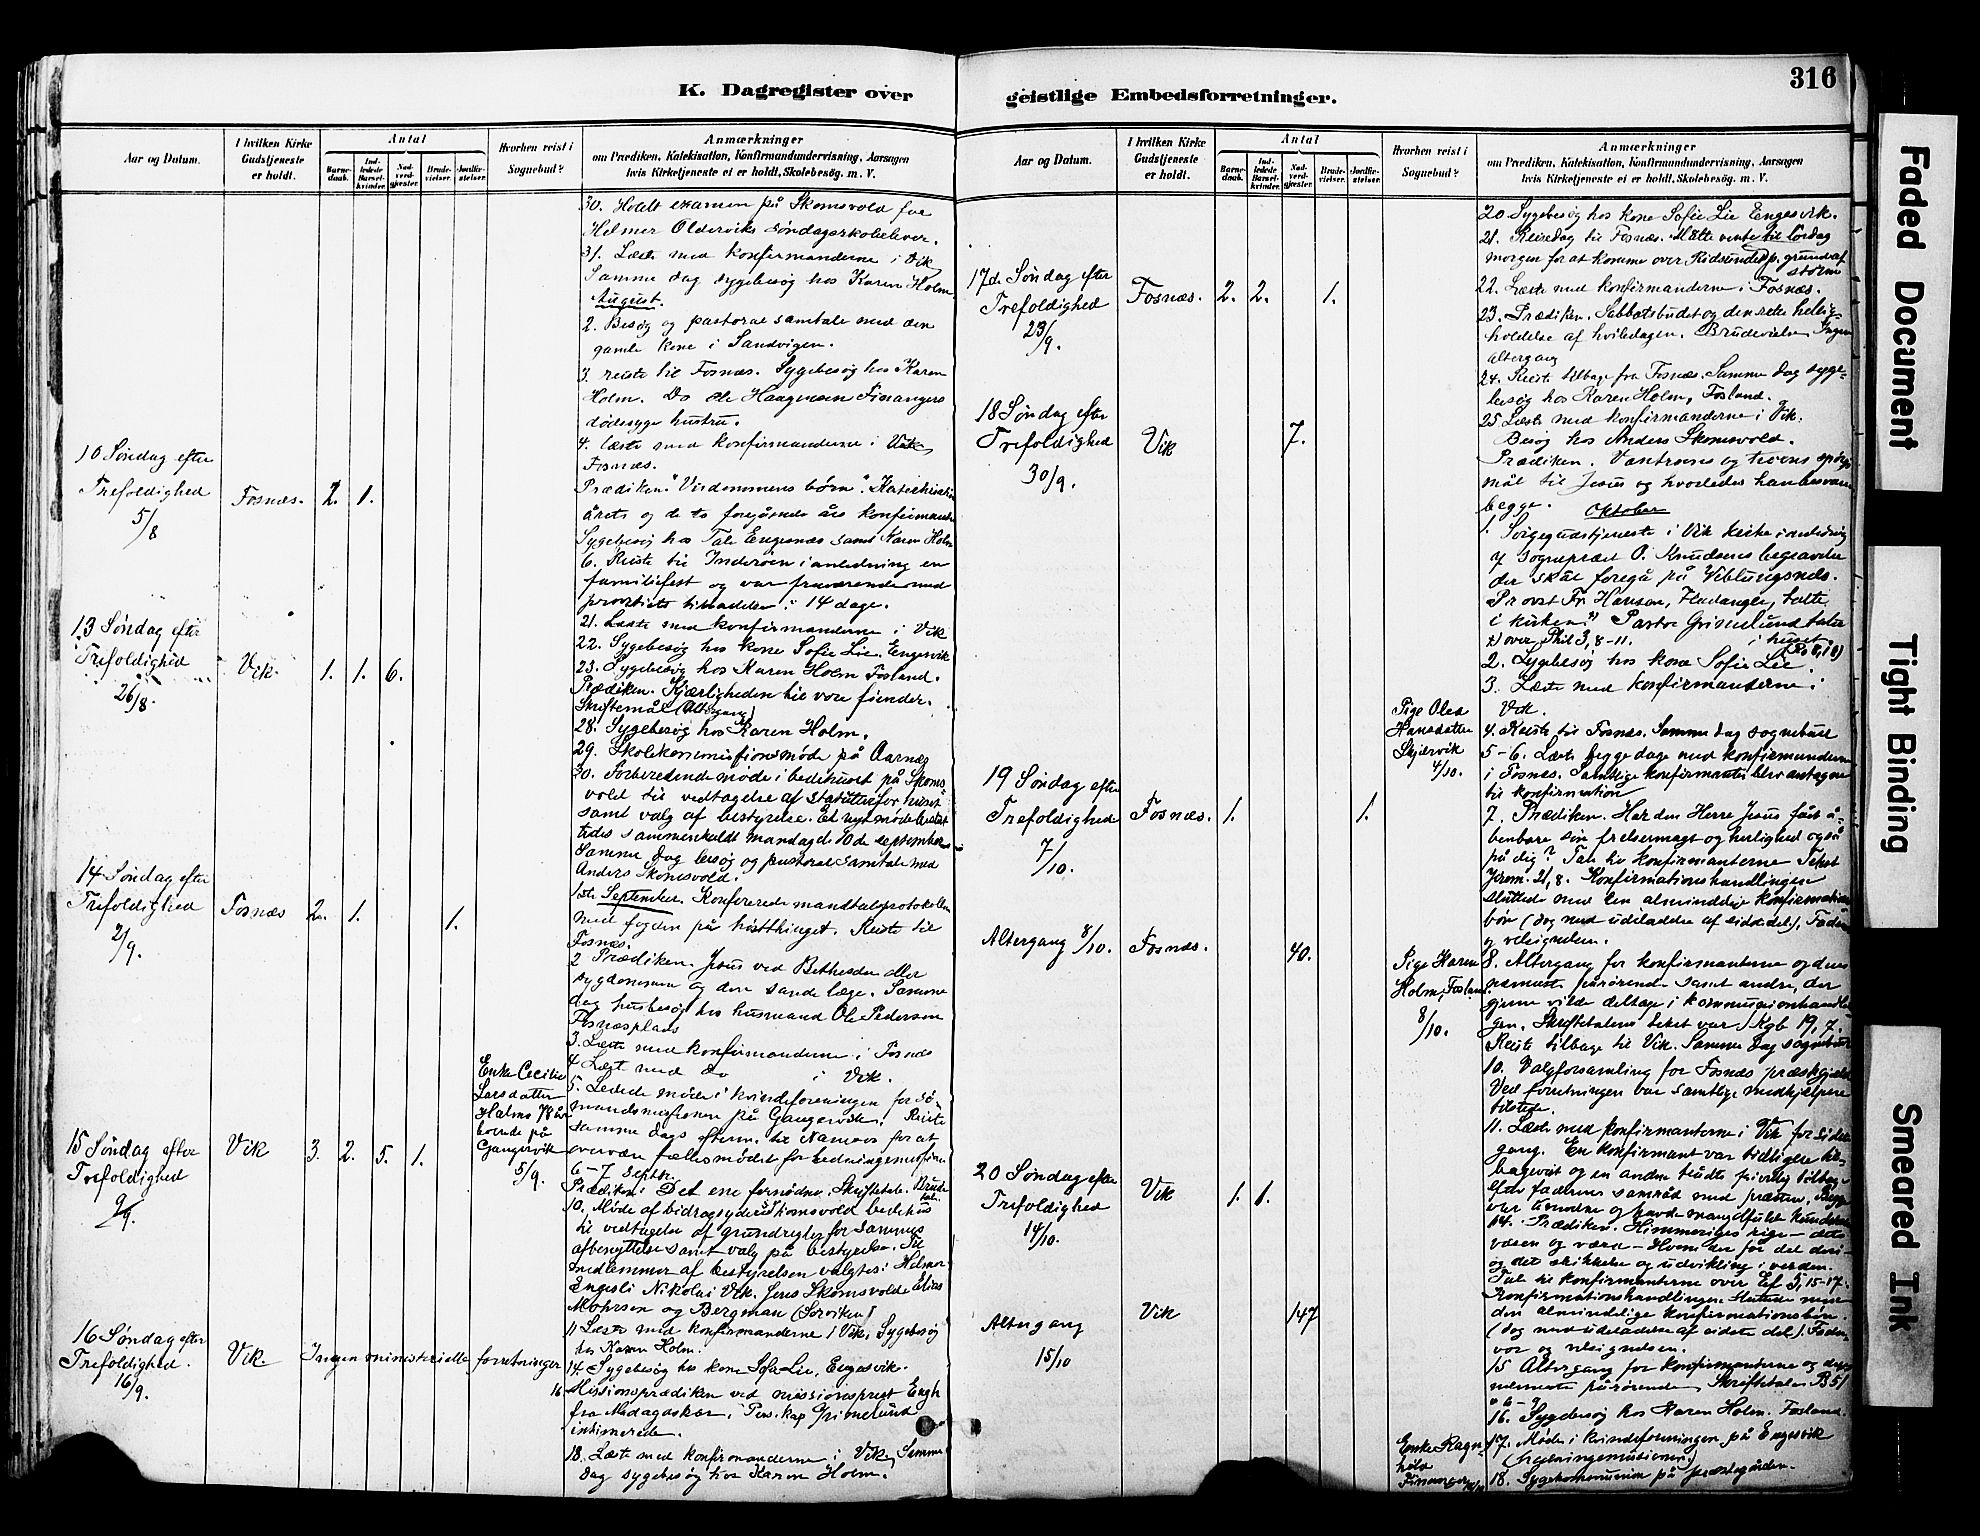 K. Dagregister over
Aar og Datum.
I hvilken Kirke
Gudstjeneste
er holdt.
Antal
Barne-
daab.
Ind-
ledede
Barsel-
kvinder.
Nad-
verd-
gjester.
Brude-
vielser.
Jordfæ-
stelser.
Hvorhen reist i
Sognebud?
Anmærkninger
om Prædiken, Katekisation, Konfirmandundervisning, Aarsagen
hvis Kirketjeneste ei er holdt, Skolebesøg. m. V.
30. Holdt examen på Skomsvold for
Helmer Olderviks søndagsskoleelever.
31. Læste med konfirmanderne i Vik
Samme dag sygebesøg hos Karen Holm
August.
2. Besøg og pastoral samtale med den
gamle kone i Sandvigen.
3. reiste til Fosnæs. Sygebesøg hos Karen
Holm. Do Ole Haagensen Finsangers
dødssyge hustru.
4. læste med konfirmanderne i
Fosnæs.
10 Søndag efter
Trefoldighed
5/8
Fosnæs. 2. 1.
Prædiken. "Verdommens børn".
årets og de to foregående års
Sygebesøg hos Tale Engesnæs samt Karen Holm
6. Reiste til Inderøen i anledning en
familiefest og var fraværende med
provstiets tilladelse i 14 dage.
21. Læste med konfirmanderne i Vik
22. Sygebesøg hos kone Sofie Lie, Engesvik
23. Sygebesøg hos Karen Holm Fosland.
13 Søndag efter
Trefoldighed
26/8.
Vik. 1. 1. 6.
Prædiken. Kjærligheden til vore fiender.
Skriftemål (Altergang)
28. Sygebesøg hos Karen Holm.
29. Skolekommissionsmøde på Aarnæs
30. Forberedende møde i bedehuset på Skoms-
vold til vedtagelse af statutter for huset
samt valg af bestyrelse. Et nyt møde
tides sammenkaldt mandag d. 10de september
Samme dag besøg og pastoral samtale med
Anders Skomsvold.
1ste September. Konfererede mandtalsprotokollen
med fogden på høstthinget. Reiste til
Fosnæs.
14 Søndag efter
Trefoldighed
2/9.
Fosnæs 2. 1. 1.
2 Prædiken. Jesus ved Bethesda eller
sygdommen og den sande læge. Samme
dag husbesøg hos husmand Ole Pedersen
Fosnæsplads
3. Læste med konfirmanderne i Fosnæs
4. Læst med do i Vik.
Enke Cecilie
Larsdatter
Halmø 78 år
boende på
Gangsvik
5/9.
5. Ledede møde i kvindeforeningen for sø-
mandsmissionen på Gangsvik. Reiste
samme dags efterm. til Namsos for at
overvære fællesmødet for hedningemissionen
6-7 Septbr.
15 Søndag efter
Trefoldighed
9/9.
Vik 3. 2. 5. 1.
Prædiken: Det ene fornødne. Skriftetale. Brude
tale.
10. Møde af bidragsydere til Skomsvold bedehus
til vedtagelse af grundregler for sammes
afbenyttelse samt valg på bestyrelse. Til
medlemmer af bestyrelsen valgtes: Helmer
Engesli Nikolai Vik. Jens Skomsvold Elias
Mohrsen og Bergman (Sørviken)
11 Læste med konfirmanderne i Vik, Sygebesøg
hos Karen Holm.
14. Sygebesøg hos kone Sofie Lie, Engesvik.
16 Søndag efter
Trefoldighed.
16/9.
Vik. Ingen ministerielle forretninger
16. Missionsprædiken ved missionsprest Engh
fra Madagaskar. Pers. kap Grimelund
intimerede.
18. Læste med konfirmanderne i Vik, Samme
dag sygebesøg hos Karen Holm.
geistlige Embedsforretninger.
316
Aar og Datum.
I hvilken Kirke
Gudstjeneste
er holdt.
Antal
Barne-
daab.
Ind-
ledede
Barsel-
kvinder.
Nad-
verd-
gjester.
Brude-
vielser.
Jordfæ-
stelser.
Hvorhen reist i
Sognebud?
Anmærkninger
om Prædiken, Katekisation, Konfirmandundervisning, Aarsagen
hvis Kirketjeneste ei er holdt, Skolebesøg. m. V.
20. Sygebesøg hos kone Sofie Lie Engesvik.
21. Reisedag til Fosnæs. Måtte vente til Lørdag
morgen for at komme over Rødsundet p. grund af
storm
22. Læste med konfirmanderne i Fosnæs.
17de Søndag efter
Trefoldighed
23/9.
Fosnæs. 2. 2. 1.
23. Prædiken. Sabbatsbudet og den rette hellig-
holdelse af hviledagen. Brudevielse Ingen
altergang
24. Reiste tilbage fra Fosnæs. Samme dag syge-
besøg hos Karen Holm, Fosland.
25. Læste med konfirmanderne i Vik.
Besøg hos Anders Skomsvold.
18 Søndag efter
Trefoldighed
30/9.
Vik 7.
Prædiken. Vantroens og troens spørgs
mål til Jesus og hvorledes han besvarer
begge.
Oktober
1. Sørgegudstjeneste i Vik kirke i anledning
af Sogneprest O. Knudsens begravelse
der skal foregå på Veblungsnes.
Provst Fr. Hansen, Fladanger, talte
i kirken. Pastor Grimelund talte
i huset
x) over Phil 3, 8-11.
2. Sygebesøg hos kone Sofie Lie.
3. Læste med konfirmanterne i
Vik.
Pige Olea
Hansdatter
Skjærvik
4/10.
4. Reiste til Fosnæs. Samme dag sognebud
5-6. Læste begge dage med konfirmanderne
i Fosnæs. Samtlige konfirmanter blev antagne
til konfirmation
19 Søndag efter
Trefoldighed
7/10.
Fosnæs. 1. 1.
7. Prædiken. Har den Herre Jesus fået å-
benbare sin frelsermagt og herlighed også
på dig? Tale til konfirmanterne Tekst
21, 8. Konfirmationshandlingen
sluttede med den almindelige konfirmations
bøn (dog med udeladelse af sidste del), Fader
og velsignelsen.
Altergang 8/10. Fosnæs. 40.
Pige Karen
Holm, Fosland.
8/10.
8. Altergang for konfirmanterne og deres
nærmeste pårørende samt andre, der
gjerne vilde deltage i kommunionhandlin
gen. Skriftetalens tekst var 1 Kgb 19, 7.
Reiste tilbage til Vik. Samme dag sognebud
10. Valgforsamling for Fosnæs præstegjæld
Ved forretningen var samtlige medhjælpere
tilstede.
11. Læste med konfirmanterne i Vik for sidste
gang. En konfirmant var tidligere til-
bagevist og en anden trådte frivillig tilbage
efter faderens samråd med præsten. Begge
var åndne og havde mangelfulde kundskaber
20 Søndag efter
Trefoldighed
14/10.
Vik 1. 1.
14. Prædiken. Himmeriges rige - dets
væsen og værd - Hvem der får det deri-
og det skikkelse og udvikling i verden.
Tale til konfirmanterne over Ef 5, 15-17.
Konfirmationshandlingen sluttede med
den almindelige konfirmationsbøn.
(dog med udeladelse af sidste del). Fader
vor og velsignelsen.
Altergang
15/10
Vik 147
15 Altergang for konfirmanterne og deres
nærmeste pårørende, Skriftetale
16. Sygebesøg hos Karen Holm. Fosland.
Enke Ragn-
hild
Finsanger
17. Møde i kvindeforeningen på Engesvik
(hedningemissionen.)
18. Sygekommunion på præstegården.
Faded Document
Tight Binding
Smeared Ink